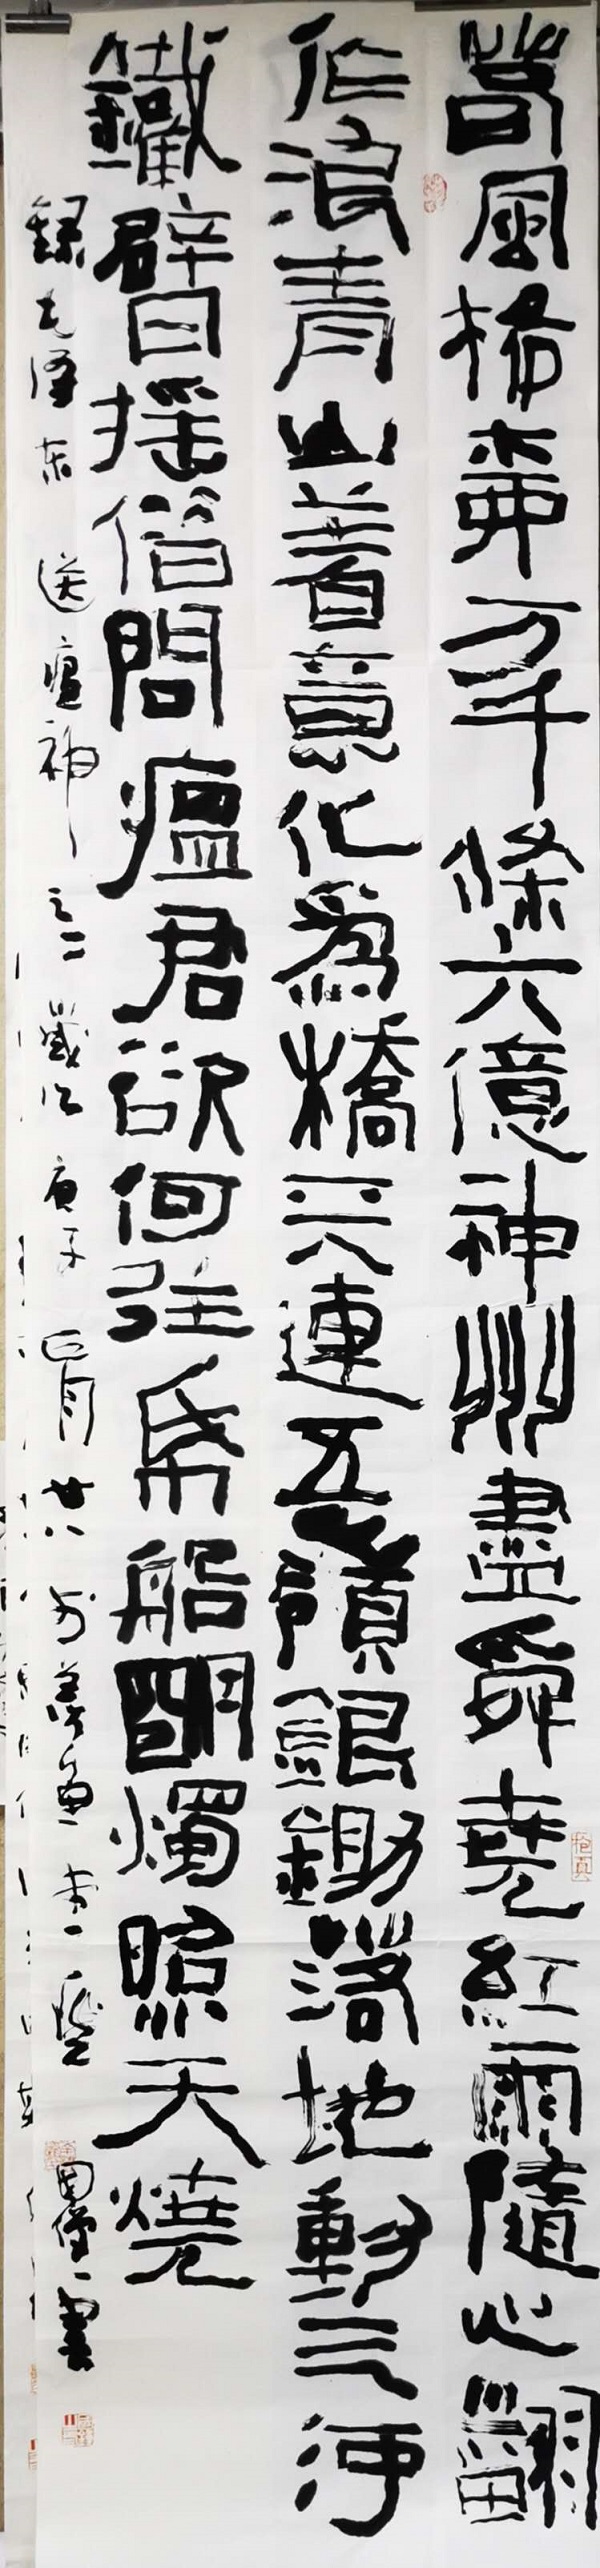 春風楊柳万千條六億神州盡舜堯紅雨隨心翻
作浪青山著意化為橋天連五嶺銀鋤落地動三河
鐵臂搖借問瘟君欲何往紙船明燭照天燒
錄毛澤东送瘟神之二歲次庚子正月廿八於